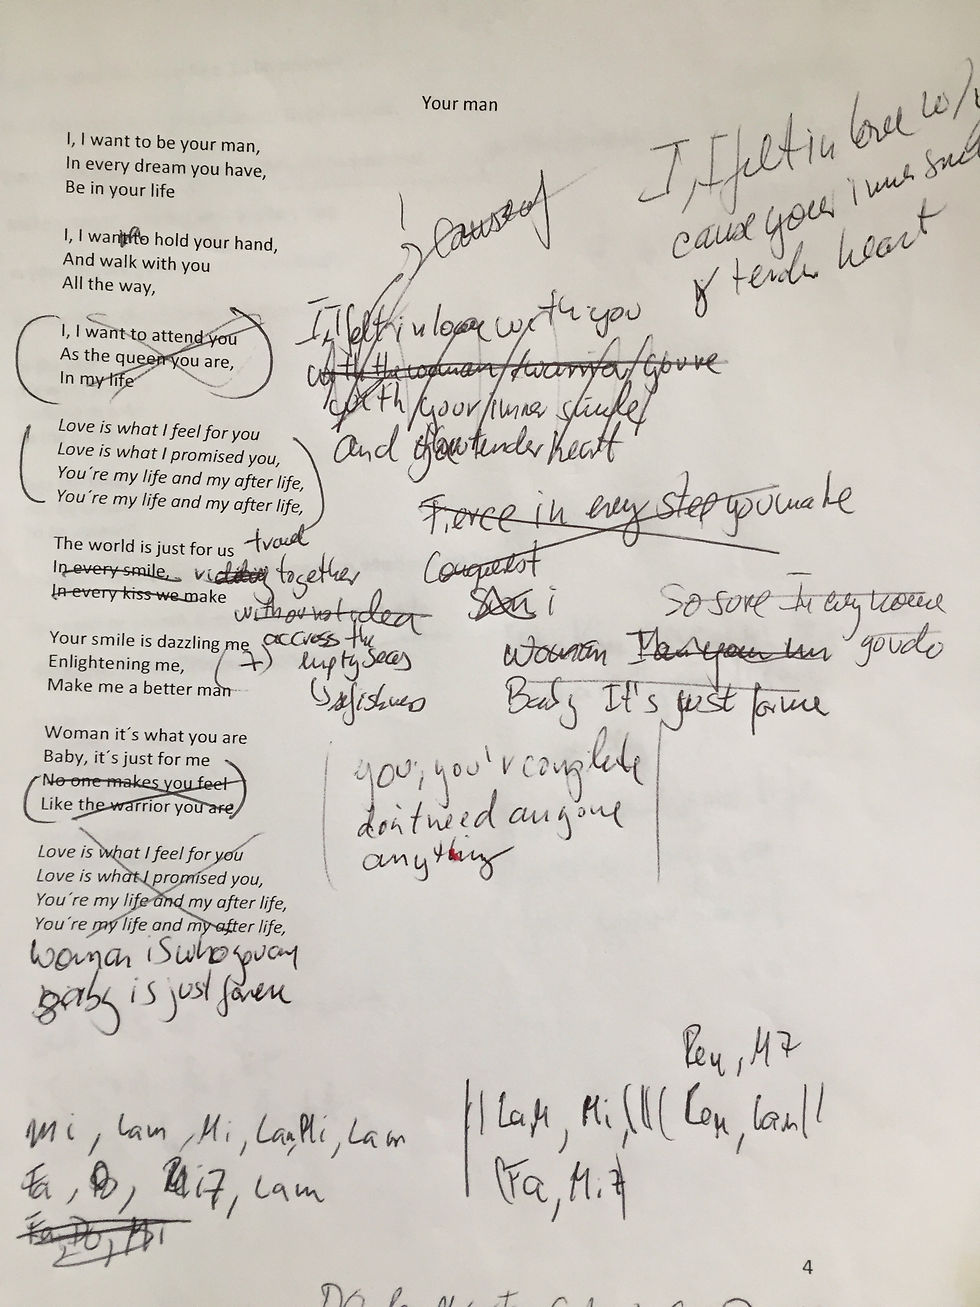 Your man
I, I want to be your man,
In every dream you have,
Be in your life
I, I want to hold your hand,
And walk with you
All the way,
I, I want to attend you
As the queen you are,
In my life
Love is what I feel for you
Love is what I promised you,
You´re my life and my after life,
You´re my life and my after life,
The world is just for us
In every smile,
In every kiss we make
Your smile is dazzling me
Enlightening me,
Make me a better man
Woman it´s what you are
Baby, it´s just for me
No one makes you feel
Like the warrior you are
Love is what I feel for you
Love is what I promised you,
You´re my life and my after life,
You´re my life and my after life,
woman is who you are
Baby is just for me
I, I felt in love
cause your inner
tender heart
I, I felt in love with you
with the woman
with your inner
and your tender heart
Fierce in every step you make
Conquest
So sore In every
woman
you do
Baby It's just for me
together
accross the
empty seas
you, you'r complete
don't need anyone
anything
Mi, Lam, Mi, Lam, Mi, Lam
Fa, Do, Mi7, Lam
Fa, Do, Mi
Rem, M7
Lam, Mi, Rem, Lam
Fa, Mi7
4